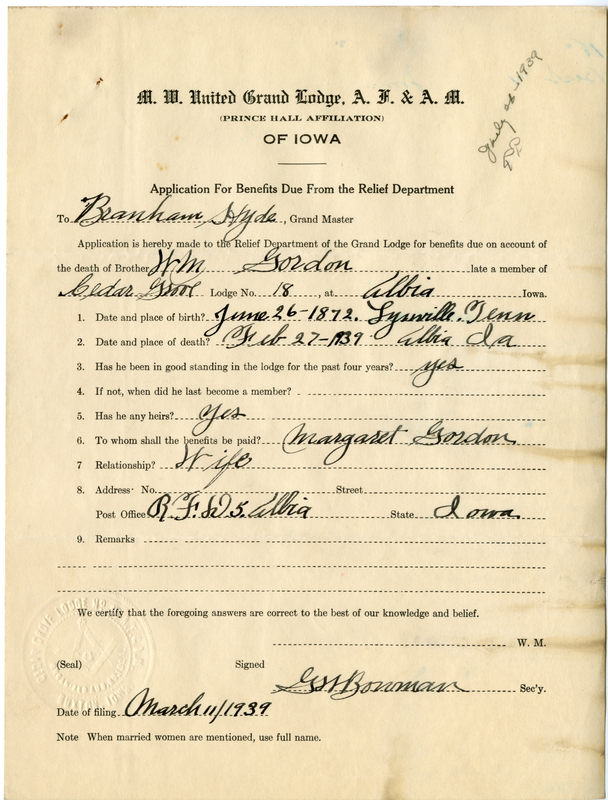 M. W. United Grand Lodge, A. F. & A. M.
(PRINCE HALL AFFILIATION)
OF IOWA
July 1939
Application For Benefits Due From the Relief Department
To Branham Hyde, Grand Master
Application is hereby made to the Relief Department of the Grand Lodge for benefits due on account of
the death of Brother Wm Gordon late a member of
Cedar Grove Lodge No. 18, at Albia Iowa.
1. Date and place of birth? June 26-1872. Lysville. Tenn
2. Date and place of death? Feb 27-1939 Albia Ia
3. Has he been in good standing in the lodge for the past four years? yes
4. If not, when did he last become a member?
5. Has he any heirs? Yes
6. To whom shall the benefits be paid? Margaret Gordon
7 Relationship? Wife
8. Address No. Street
Post Office R.F.D 5. Albia State Iowa
9. Remarks
We certify that the foregoing answers are correct to the best of our knowledge and belief.
W. M.
(Seal) Signed
GW Bowman Sec'y.
Date of filing March 11/1939
Note When married women are mentioned, use full name.